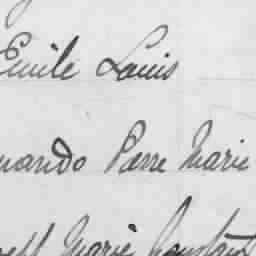 Emile Louis
nando Pierre Marie
Marie Constant